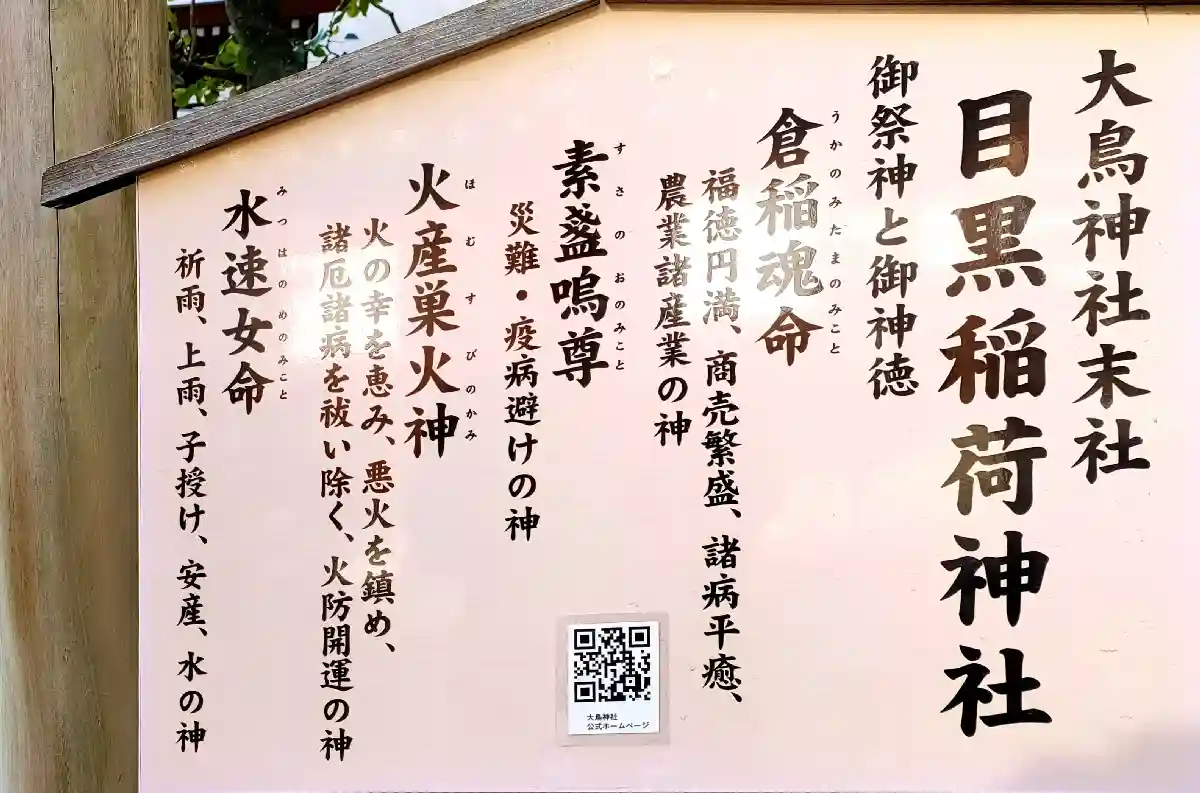 大鳥神社末社
目黒稲荷神社
御祭神と御神徳
うかのみたまのみこと
倉稲魂命
福徳円満、商売繁盛、諸病平癒、
農業諸産業の神
すさのおのみこと
素盞嗚尊
災難・疫病避けの神
ほむすびのかみ
火産巣火神
火の幸を恵み、悪火を鎮め、
諸厄諸病を祓い除く、火防開運の神
みつはのめのみこと
水速女命
祈雨、上雨、子授け、安産、水の神
大鳥神社
公式ホームページ